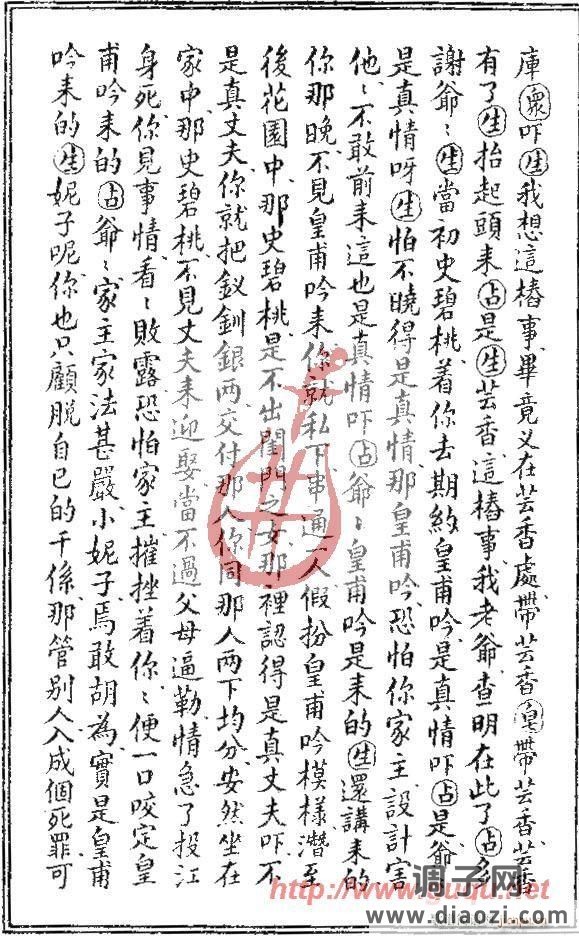 庫衆吓生我想這樁事畢竟又在芸香處帶芸香皂帶芸香芸香
有了生抬起頭来占是生芸香這樁事我老爺查明在此了占多
謝爺〻生當初史碧桃着你去期約皇甫吟是真情吓占是爺
是真情呀生怕不曉得是真情那皇甫吟恐怕你家主設計害
他〻不敢前来這也是真情吓占爺〻皇甫吟是来的生還講来的
你那晚不見皇甫吟来你就私下串通一人假扮皇甫吟模樣潛至
後花園中那史碧桃是不出閨門之女那裡認得是真丈夫吓不
是真丈夫你就把釵釧銀两交付那人你同那人两下均分安然坐在
家中那史碧桃不見丈夫来迎娶當不過父母逼勒情急了投江
身死你見事情看〻敗露恐怕家主摧挫着你〻便一口咬定皇
甫吟来的占爺〻家主家法甚嚴小妮子焉敢胡為實是皇甫
吟来的生妮子呢你也只顧脱自已的干係那管别人入成個死罪可
http://www.guqu.net
调子网
www.diaozi.com